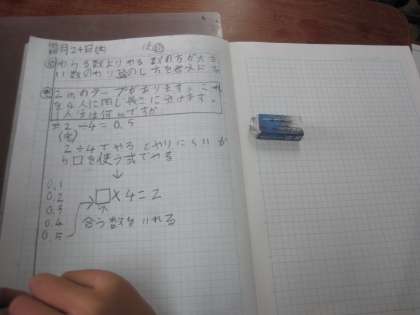 月24日(火)
わる数よりわる数の方が大き
い数のわり算のしかたを考えよう
2mのテープがあります。これ
を4人に同じ長さに分けます。
1人分は何mですか
式 2÷4=0.5
2÷4でやるとやりにくいか
ら□を使う式でやる
↓
0.1
0.2
□×4=2
0.3
0.4
合う数を入れる
0.5